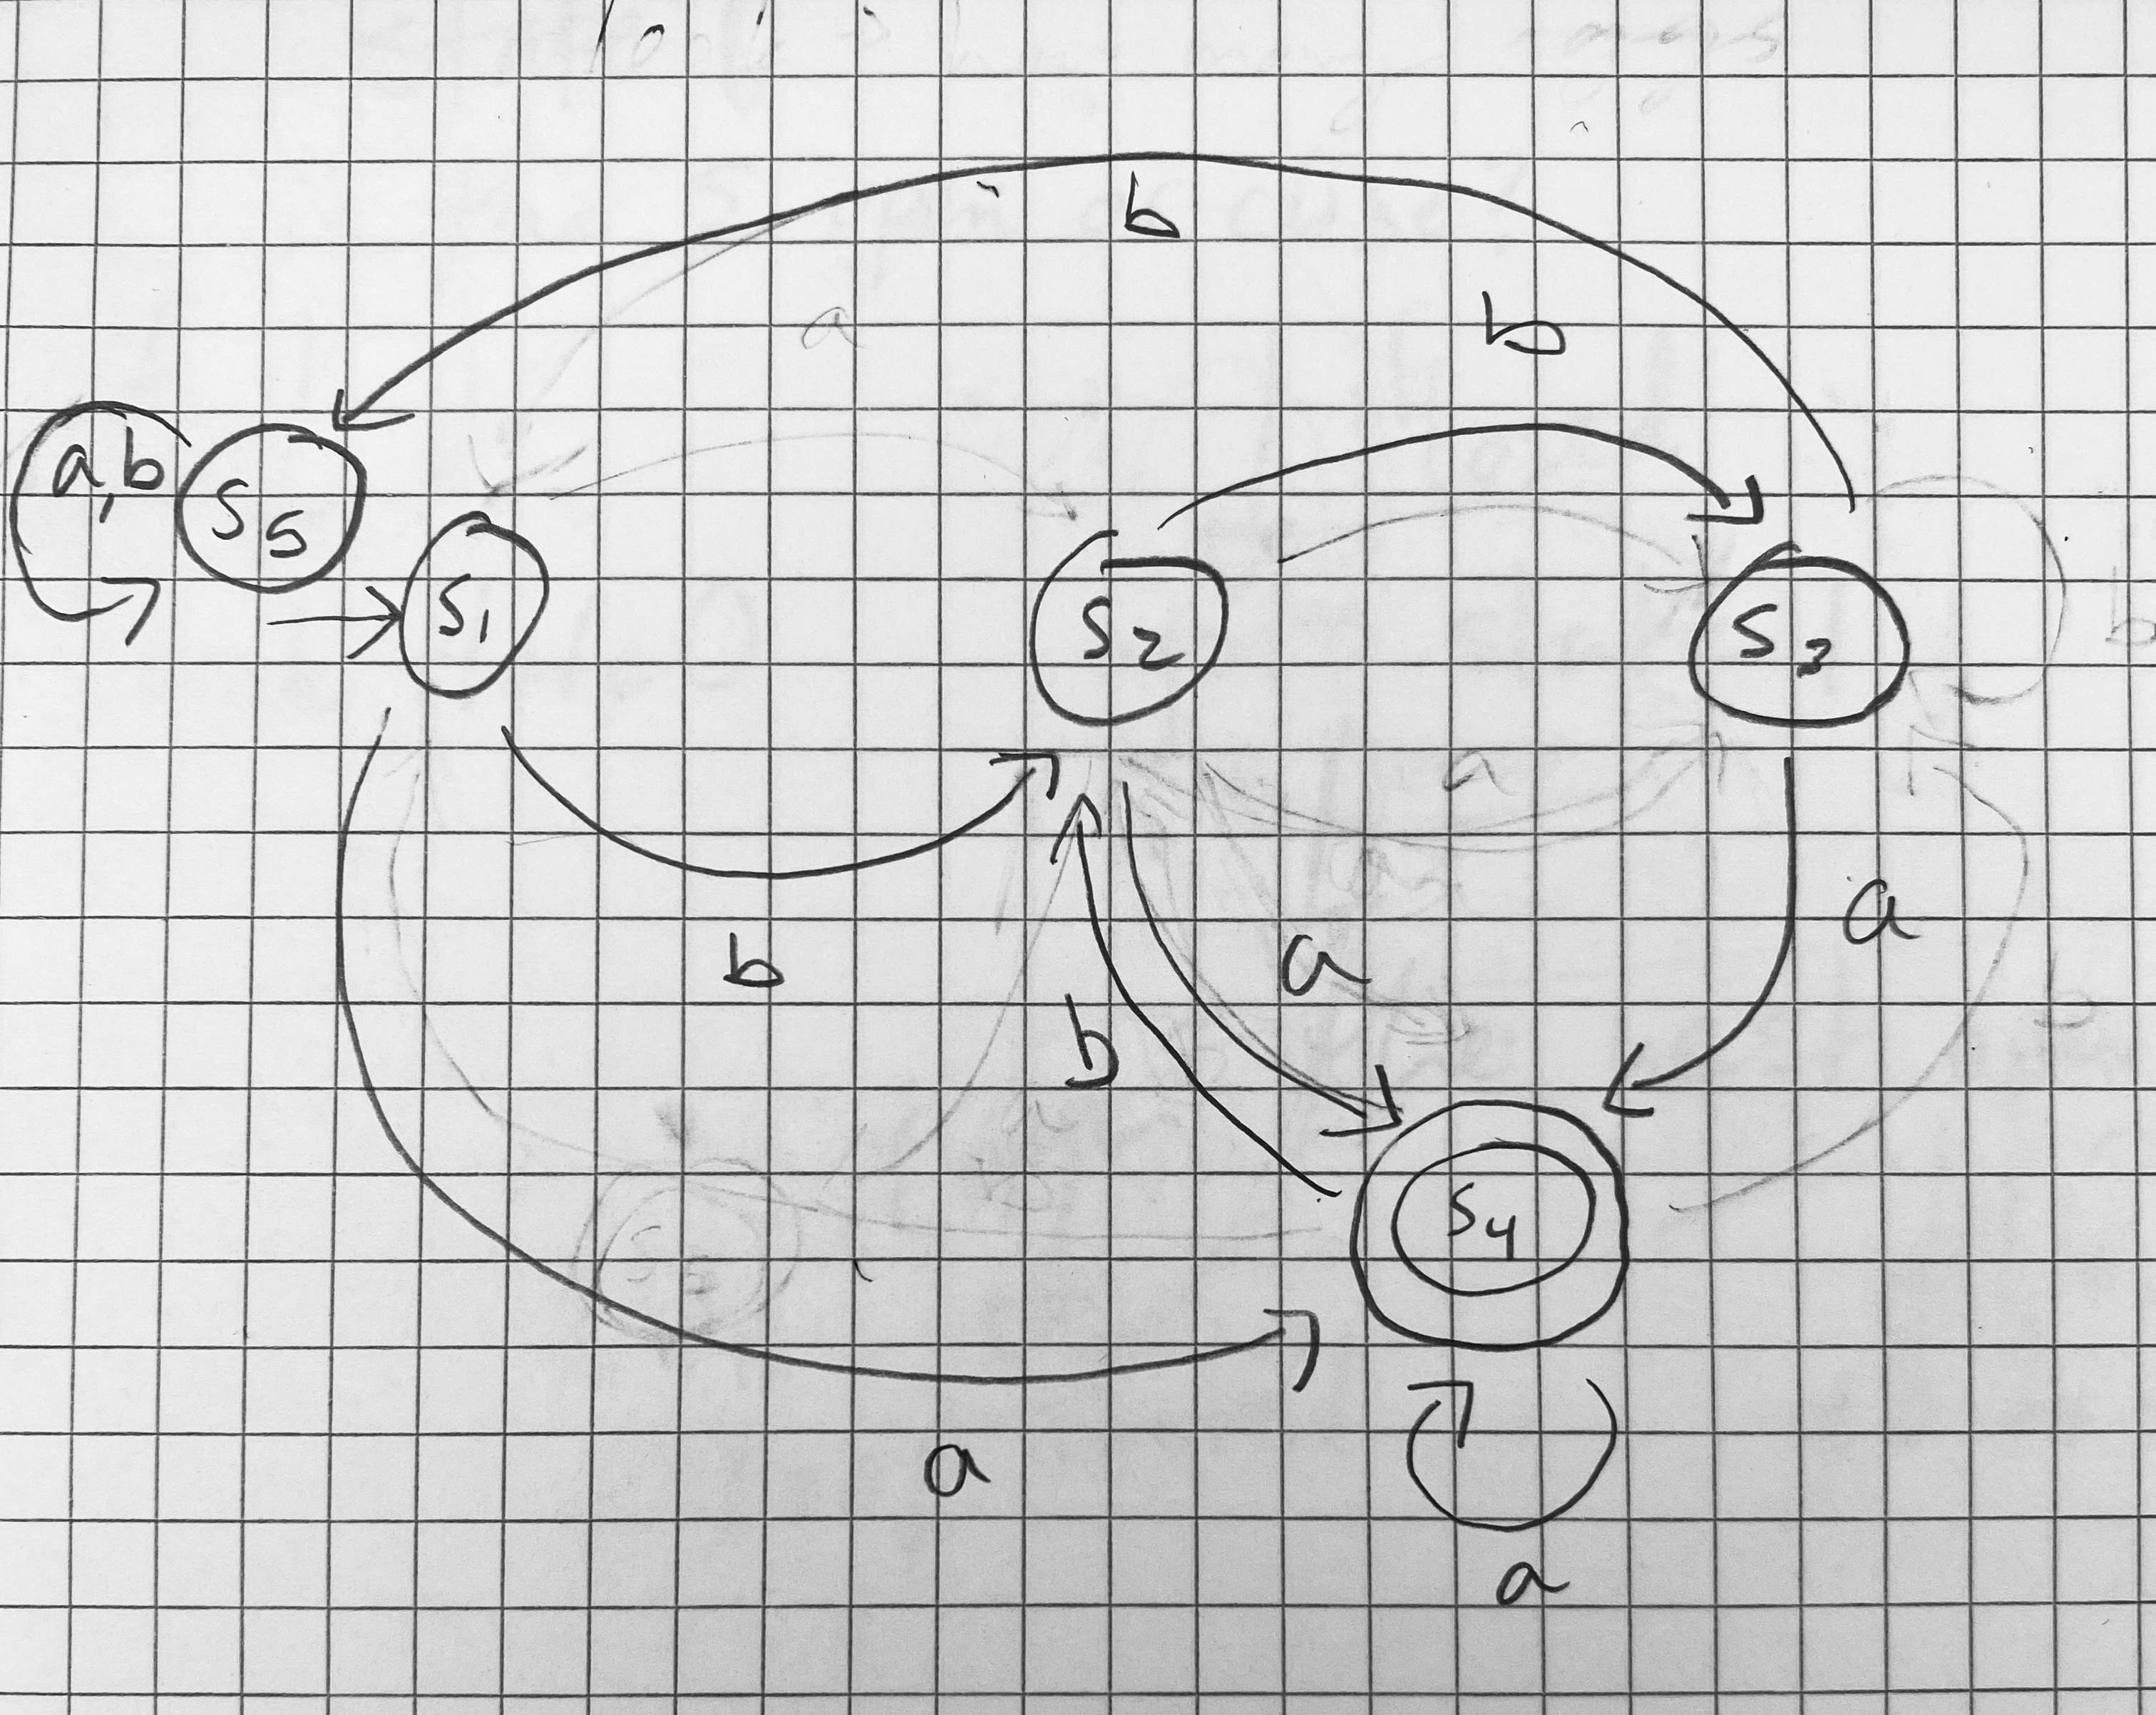 b
b
a
a,b
S5
S1
S2
S3
a
a
a
b
b
S4
a
a